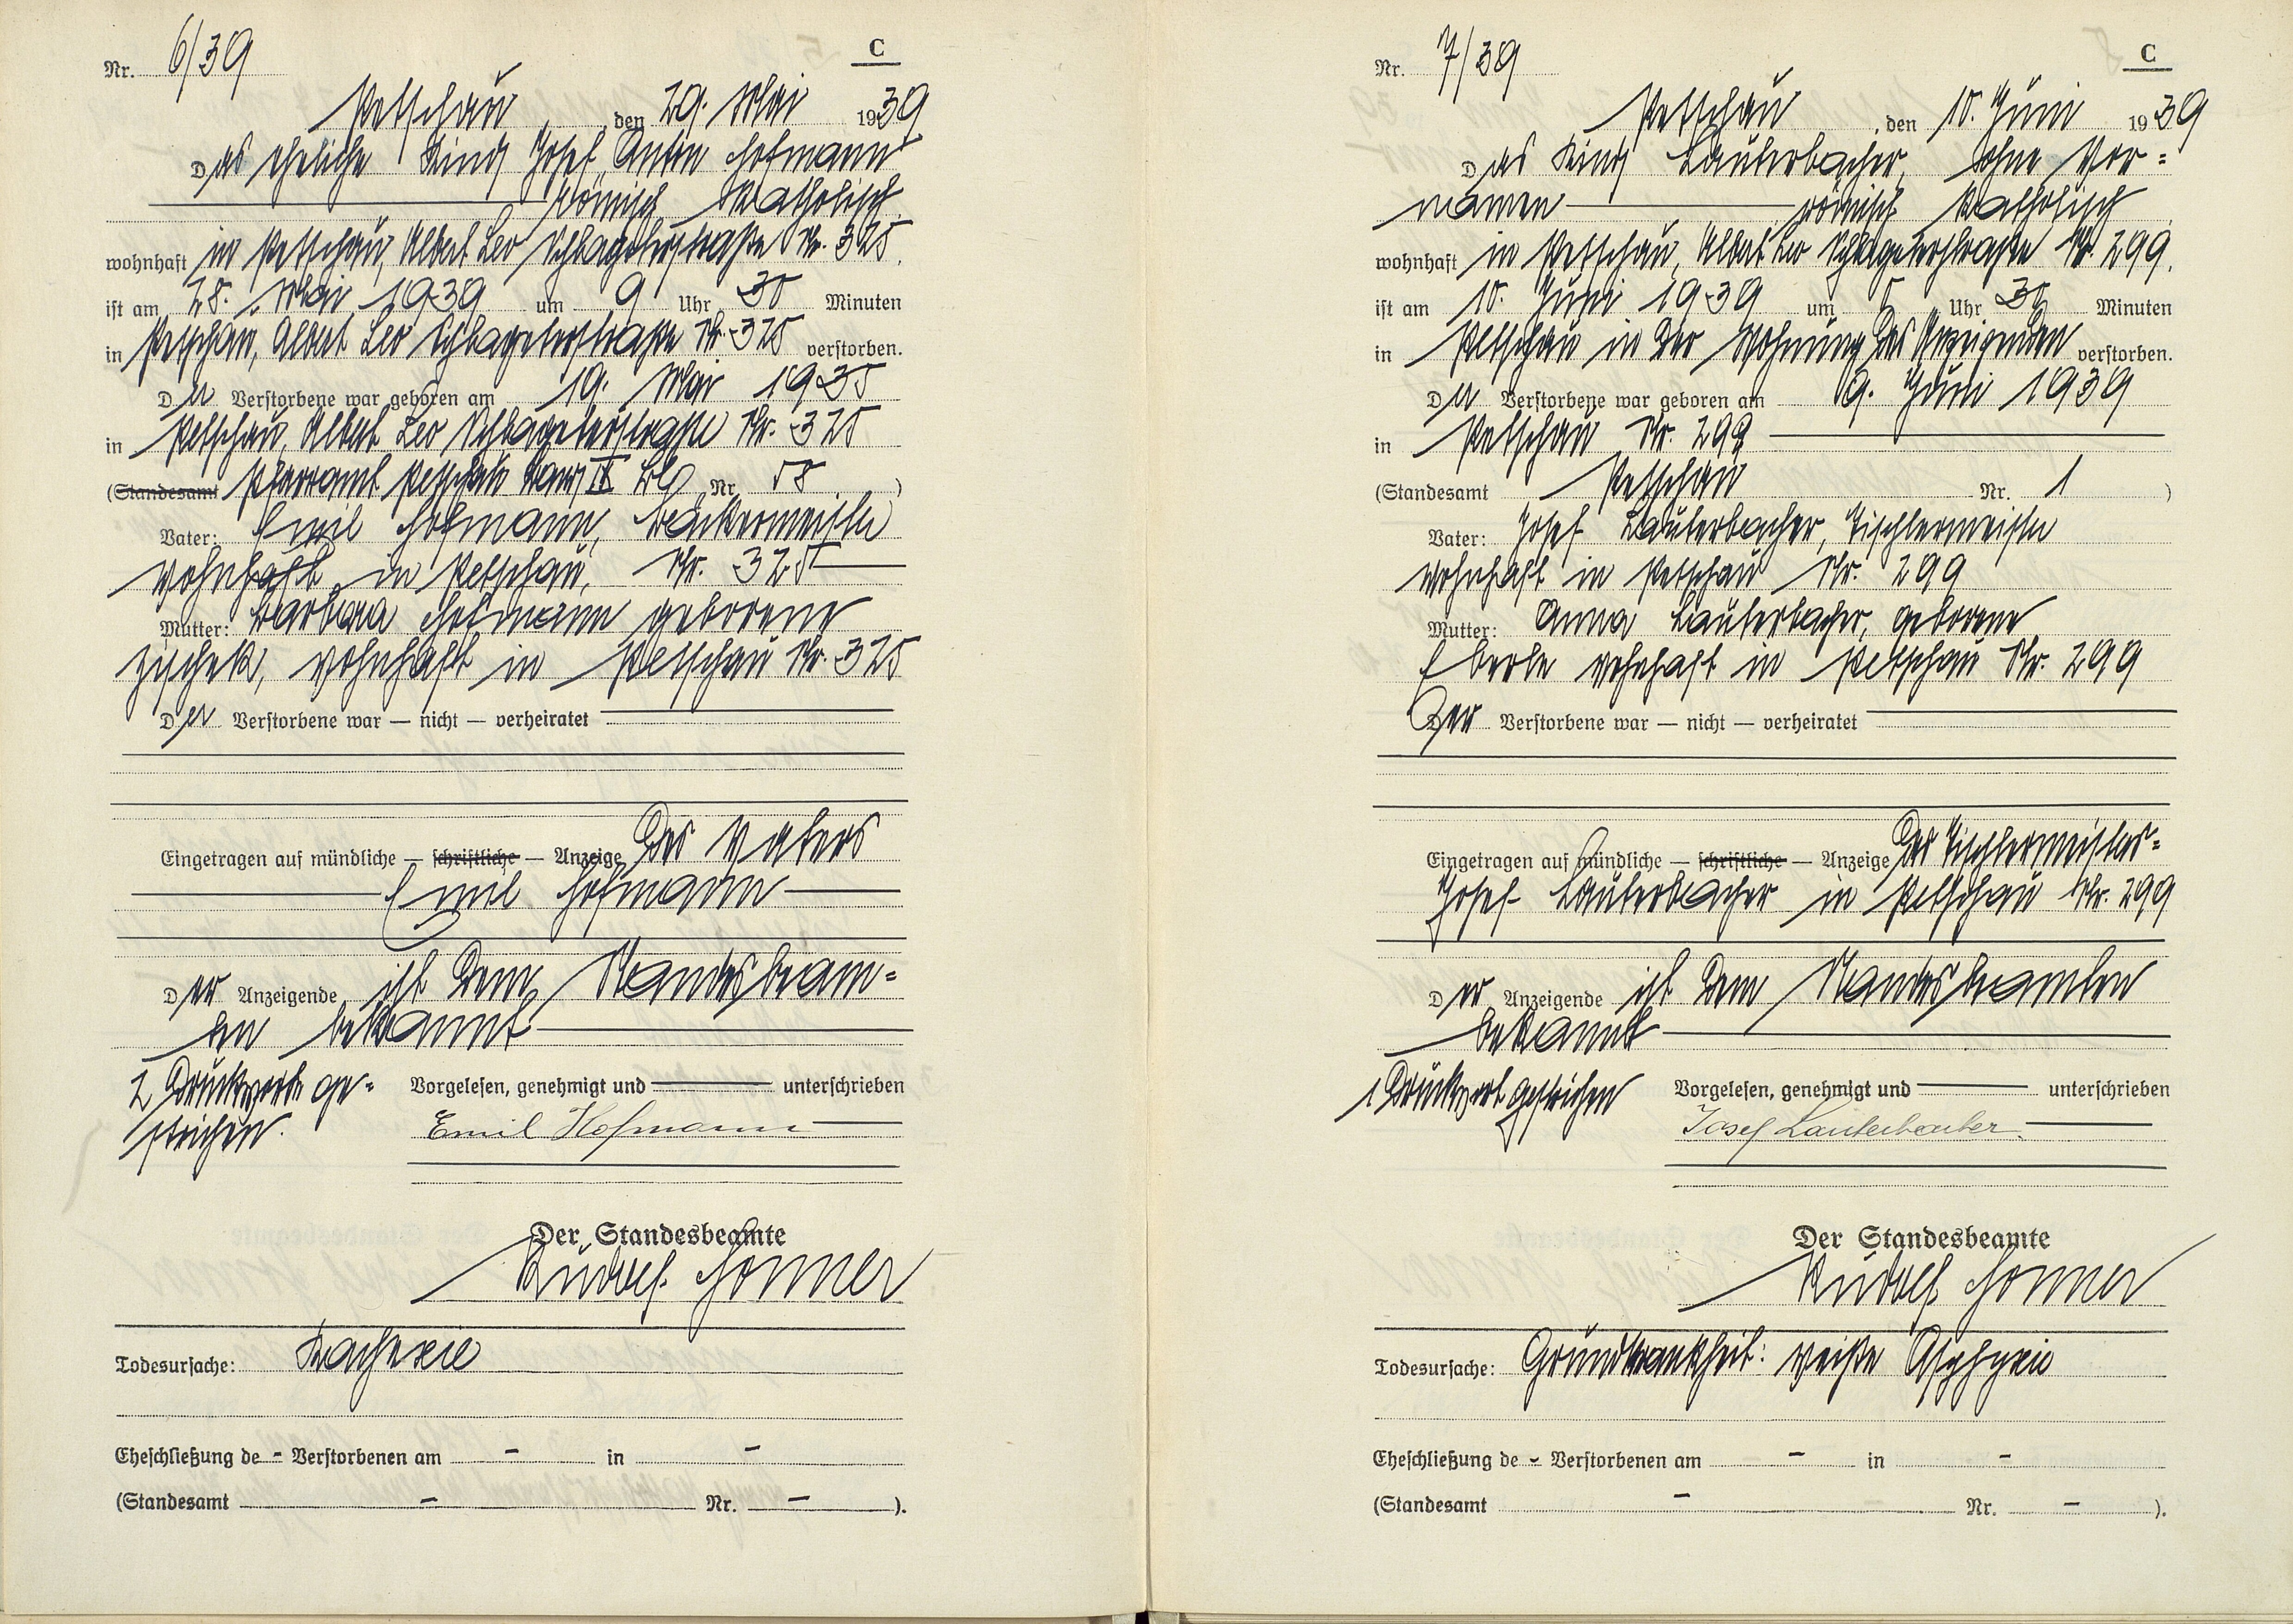 Nr. 6/39
C
Petschau, den 29. Mai 1939
Das eheliche Kind Josef, Anton Hofmann
römisch Katholisch
wohnhaft in Petschau, Albert Leo Schlageterstraße Nr. 325.
ist am 28. Mai 1939 um 9 Uhr 30 Minuten
in Petschau, Albert Leo Schlageterstraße Nr. 325 verstorben.
Der Verstorbene war geboren am 19. Mai 1935
in Petschau, Albert Leo Schlageterstraße Nr. 325
(Standesamt Pfarramt Petschau Band IX Nr. 58)
Vater: Emil Hofmann, Bäckermeister
wohnhaft in Petschau, Nr. 325
Mutter: Barbara Hofmann geborene
Zischek, wohnhaft in Petschau Nr. 325
Der Verstorbene war — nicht — verheiratet
Eingetragen auf mündliche — schriftliche — Anzeige des Vaters
Emil Hofmann
Der Anzeigende ist dem Standesbeam=
ten bekannt
2 Druckworte ge=
strichen.
Vorgelesen, genehmigt und unterschrieben
Emil Hofmann
Der Standesbeamte
Rudolf Honner
Todesursache: Kachexie
Eheschließung de - Verstorbenen am - in -
(Standesamt - Nr. - ).
Nr. 7/39
C
Petschau, den 10. Juni 1939
Das Kind Lauterbacher, ohne Vor=
namen römisch Katholisch
wohnhaft in Petschau, Albert Leo Schlageterstraße Nr. 299.
ist am 10. Juni 1939 um 5 Uhr 30 Minuten
in Petschau in der Wohnung des Anzeigenden verstorben.
Der Verstorbene war geboren am 9. Juni 1939
in Petschau Nr. 299
(Standesamt Petschau Nr. 1)
Vater: Josef Lauterbacher, Tischlermeister
wohnhaft in Petschau Nr. 299
Mutter: Anna Lauterbacher, geborene
Eberle wohnhaft in Petschau Nr. 299
Der Verstorbene war — nicht — verheiratet
Eingetragen auf mündliche — schriftliche — Anzeige des Tischlermeisters=
Josef Lauterbacher in Petschau Nr. 299
Der Anzeigende ist dem Standesbeamten
bekannt
1 Druckwort gestrichen
Vorgelesen, genehmigt und unterschrieben
Josef Lauterbacher
Der Standesbeamte
Rudolf Honner
Todesursache: Grundkrankheit: weiße Asphyxie
Eheschließung de - Verstorbenen am - in -
(Standesamt - Nr. - ).